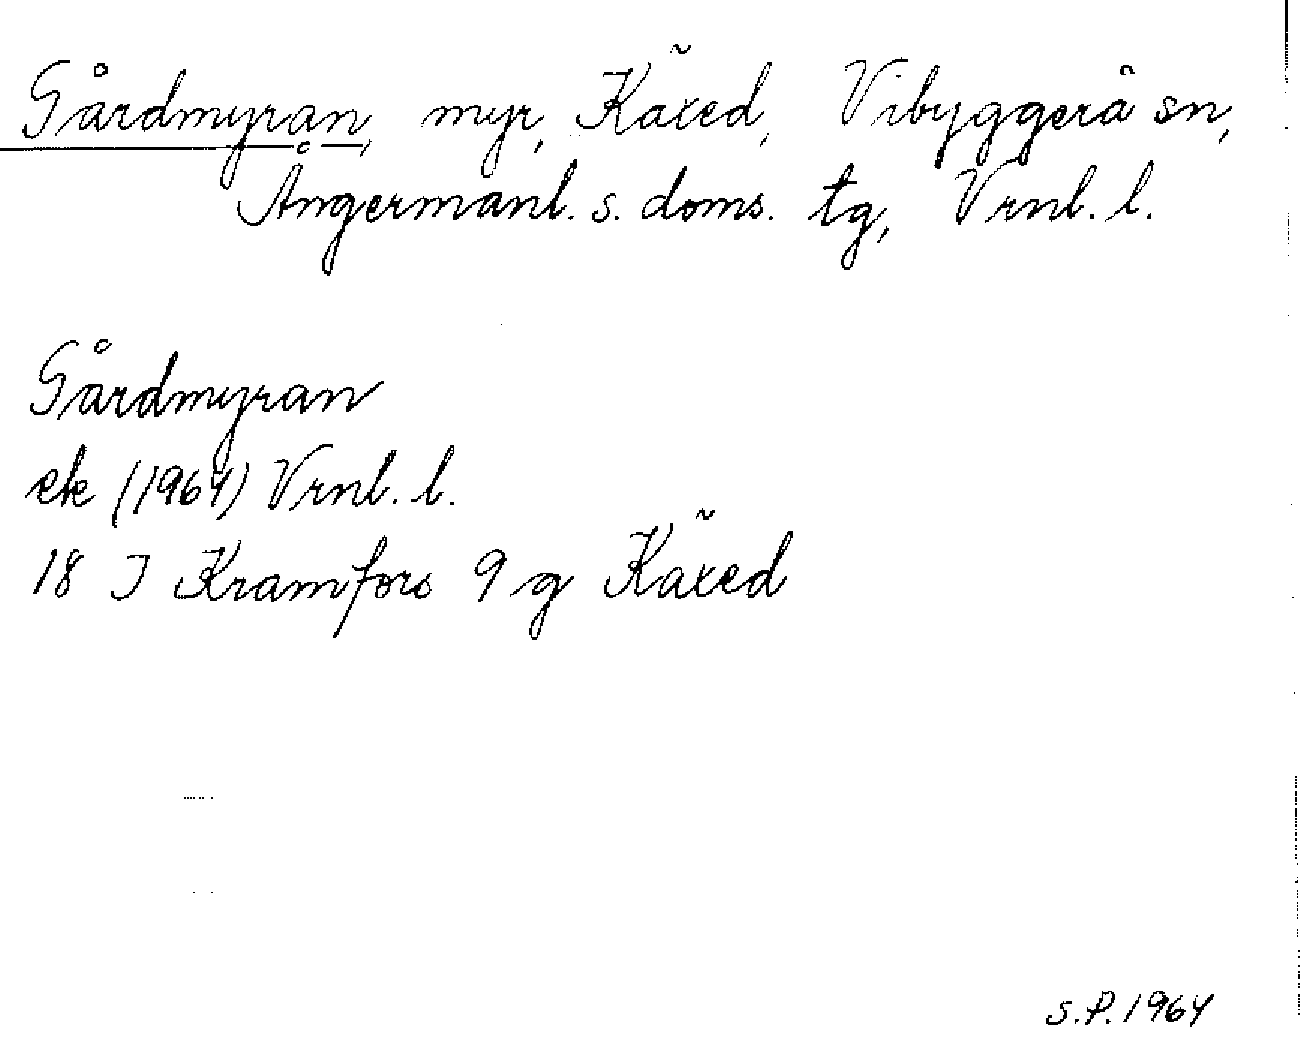 Gårdmyran, myr, Käxed, Vibyggerå sn,
Ångermanl. s. doms. tg, Vrnl. l.
Gårdmyran
ek (1964) Vrnl. l.
18 J Kramfors 9 g Käxed
S.P. 1964